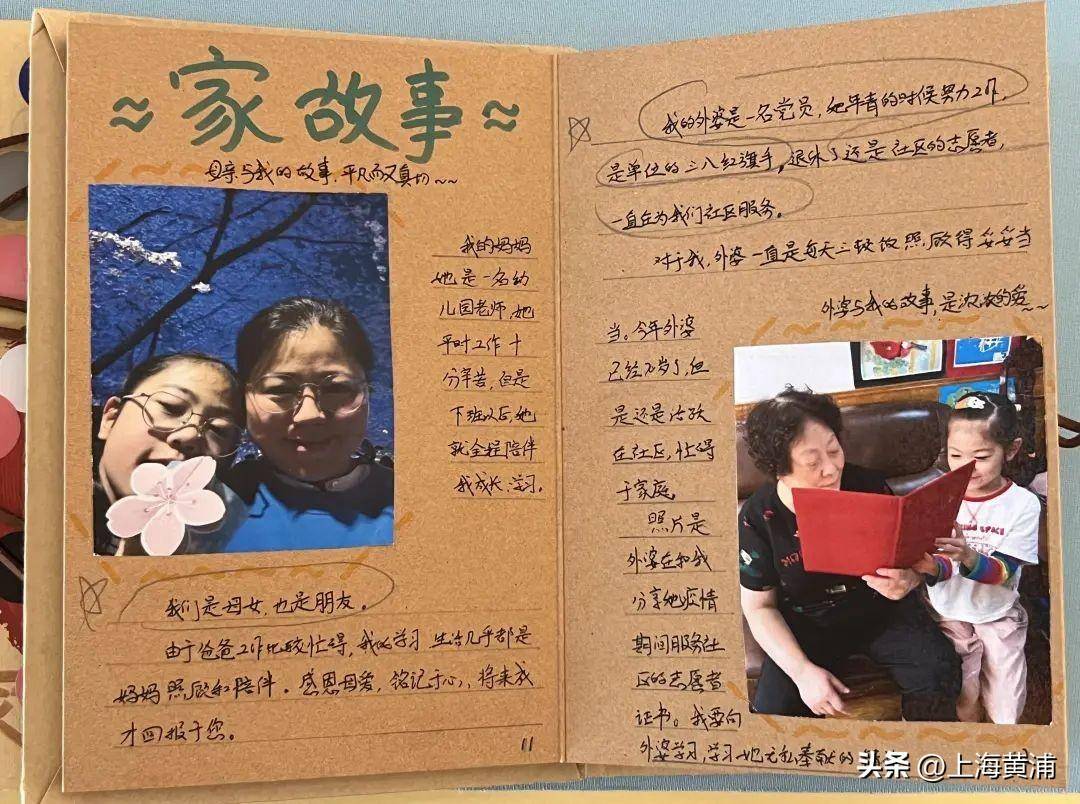 ~家故事~
母亲与我的故事,平凡而又真切~~
我的妈妈
她是一名幼
儿园老师,她
平时工作十
分辛苦,但是
下班以后,她
就全程陪伴
我成长、学习。
我们是母女,也是朋友。
由于爸爸工作比较忙碌,我的学习生活几乎都是
妈妈照顾和陪伴。感恩母爱,铭记于心,将来我
才回报于您。
11
我的外婆是一名党员,她年青的时候努力工作,
是单位的三八红旗手,退休了还是社区的志愿者,
一直在为我们社区服务。
对于我,外婆一直是每天三顿饭照顾得妥妥当
外婆与我的故事,是浓浓的爱~
当。今年外婆
已经 岁了,但
是还是活跃
在社区,忙碌
于家庭。
照片是
外婆在和我
分享她疫情
期间服务社
区的志愿者
证书。我要向
外婆学习,学习她无私奉献的
头条 @上海黄浦